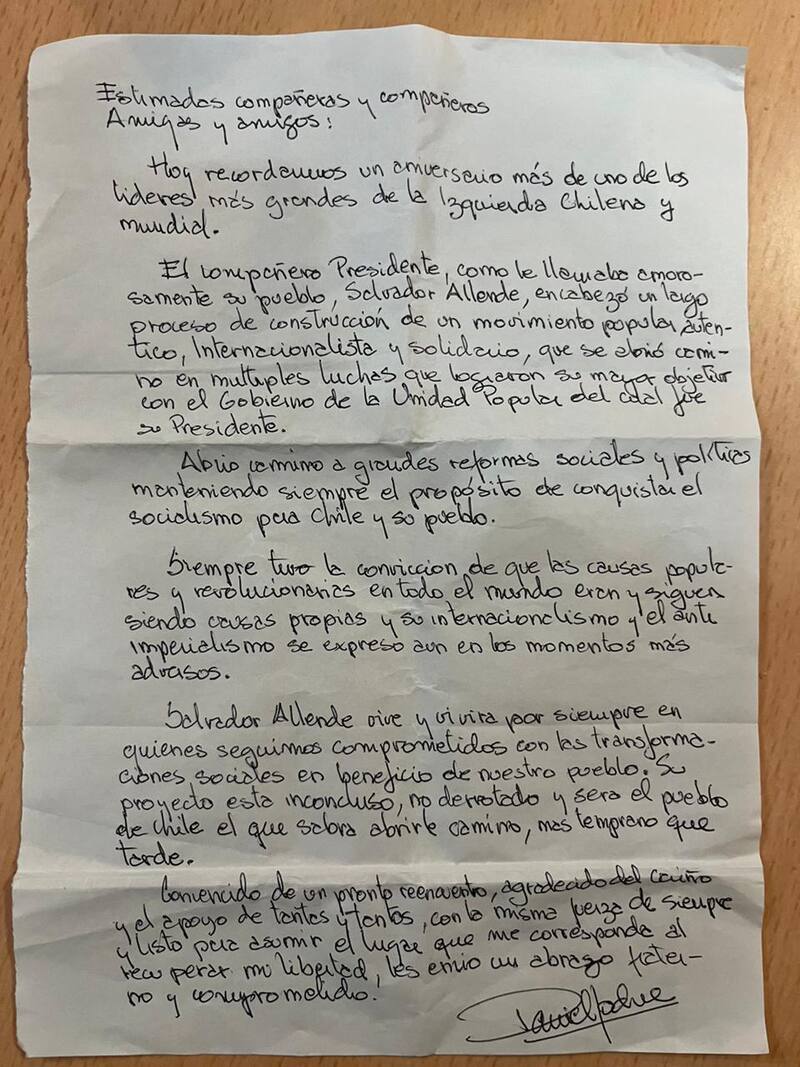 Estimadas compañeras y compañeros
Amigas y amigos:
Hoy recordamos un aniversario más de uno de los
lideres más grandes de la Izquierda Chilena y
mundial.
El compañero Presidente, como le llamaba amoro-
samente su pueblo, Salvador Allende, encabezó un largo
proceso de construcción de un movimiento popular, auten-
tico, Internacionalista y solidario, que se abrió cami-
no en multiples luchas que lograron su mayor objetivo
con el Gobierno de la Unidad Popular del cual fue
su Presidente.
Abrio camino a grandes reformas sociales y políticas
manteniendo siempre el propósito de conquistar el
socialismo para Chile y su pueblo.
Siempre tuvo la conviccion de que las causas popula-
res y revolucionarias en todo el mundo eran y siguen
siendo causas propias y su internacionalismo y el anti
imperialismo se expreso aun en los momentos más
adversos.
Salvador Allende vive y vivira por siempre en
quienes seguimos comprometidos con las transforma-
ciones sociales en beneficio de nuestro pueblo. Su
proyecto esta inconcluso, no derrotado y sera el pueblo
de Chile el que sabra abrirle camino, mas temprano que
tarde.
Convencido de un pronto reencuentro, agradecido del cariño
y el apoyo de tantas y tantos, con la misma fuerza de siempre
y listo para asumir el lugar que me corresponda al
recuperar mi libertad, les envio un abrazo frater-
no y comprometido.
Daniel Jadue